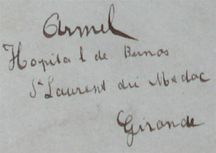 Armel
Hopital de Bernos
St Laurent du Medoc
Gironde